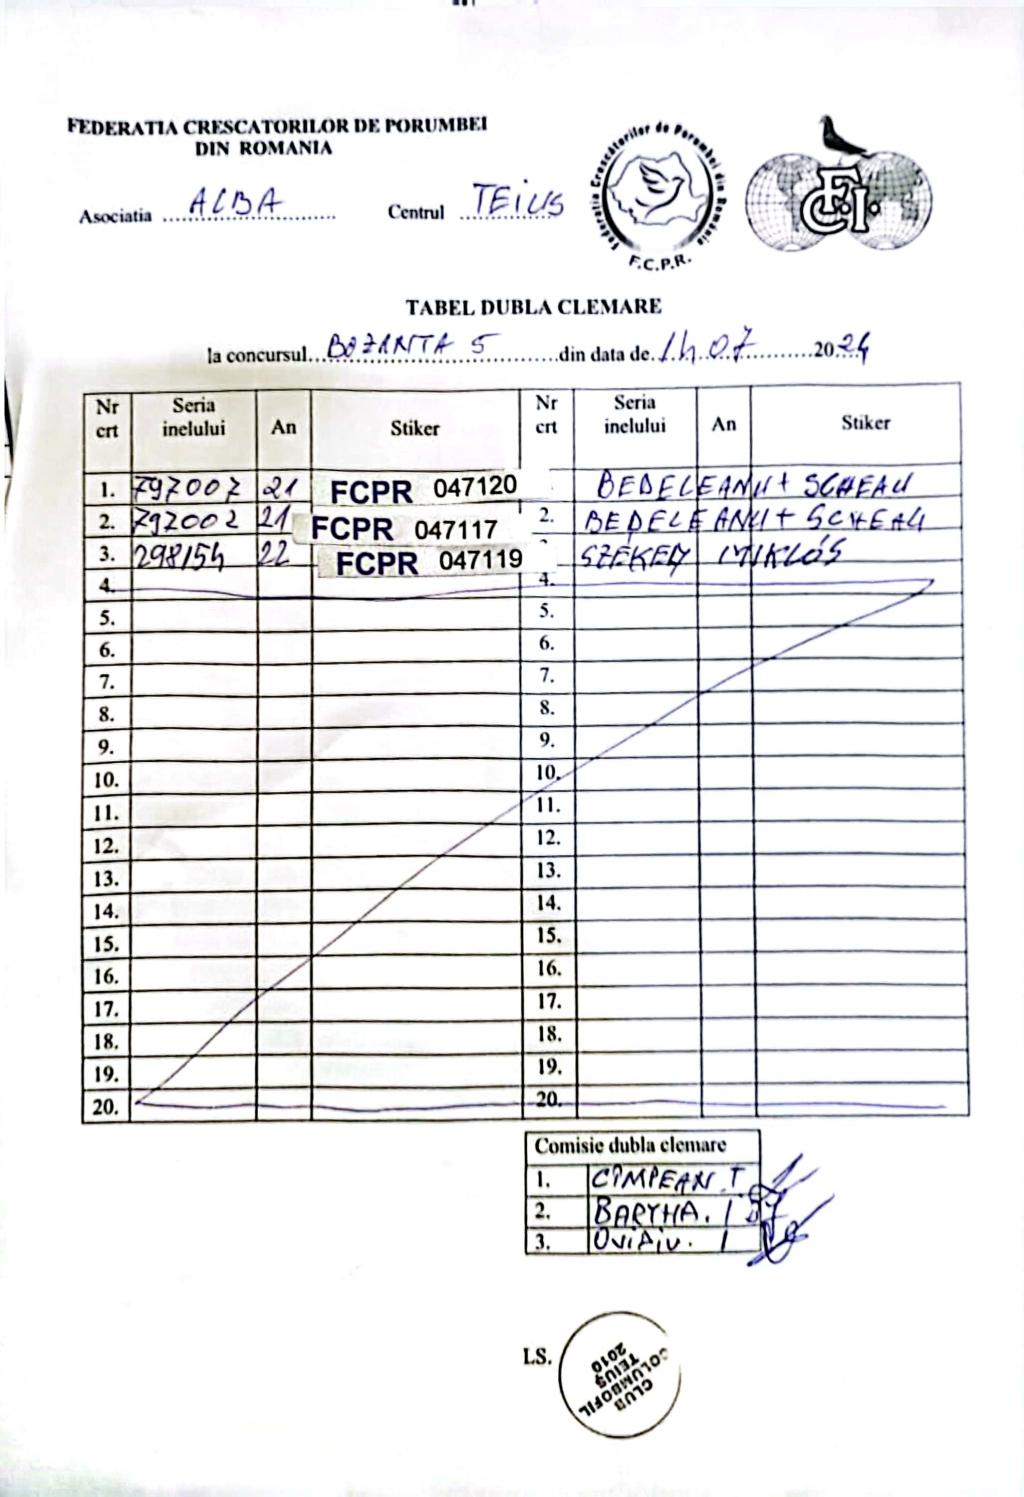 FEDERATIA CRESCATORILOR DE PORUMBEI
DIN ROMANIA
Asociatia ALBA Centrul TEIUS
Federatia Crescătorilor de Porumbei din România
F.C.P.R.
F.C.I.
TABEL DUBLA CLEMARE
la concursul BOZANTA 5 din data de 14.07 2024
Nr crt Seria inelului An Stiker Nr crt Seria inelului An Stiker
1. 797007 21 FCPR 047120 BEDELEANU + SCHEAU
2. 797002 21 FCPR 047117 2. BEDELEANU + SCHEAU
3. 298154 22 FCPR 047119 SZÉKELY MIKLÓS
4. 4.
5. 5.
6. 6.
7. 7.
8. 8.
9. 9.
10. 10.
11. 11.
12. 12.
13. 13.
14. 14.
15. 15.
16. 16.
17. 17.
18. 18.
19. 19.
20. 20.
Comisie dubla clemare
1. CÎMPEAN T
2. BARTHA. I
3. OVIDIU. I
LS.
CLUB
COLUMBOFIL
TEIUȘ
2010